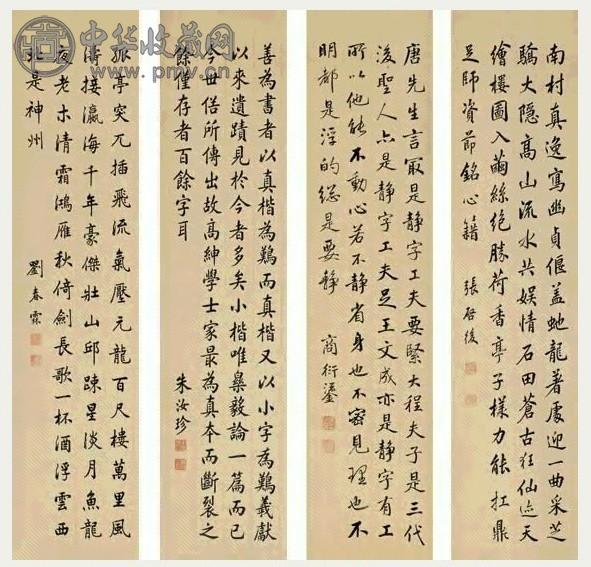 南村真逸寫幽貞偃蓋虬龍著處迎一曲采芝
驕大隱高山流水共娛情石田蒼古狂仙迹天
繪樓圖入繭絲絕勝荷香亭子樣力能扛鼎
足師資節銘心籍
張啓後
唐先生言最是靜字工夫要緊大程夫子是三代
後聖人亦是靜字工夫足王文成亦是靜字有工
所以他能不動心若不靜省身也不密見理也不
明都是浮的總是要靜
商衍鎏
善為書者以真楷為難而真楷又以小字為難羲獻
以來遺蹟見於今者多矣小楷唯樂毅論一篇而已
今世俗所傳出故高紳學士家最為真本而斷裂之
餘僅存者百餘字耳
朱汝珍
孤亭突兀插飛流氣壓元龍百尺樓萬里風
濤接瀛海千年豪傑壯山邱疎星淡月魚龍
夜老木清霜鴻雁秋倚劍長歌一杯酒浮雲西
北是神州
劉春霖
中华收藏网
www.pmv.cn